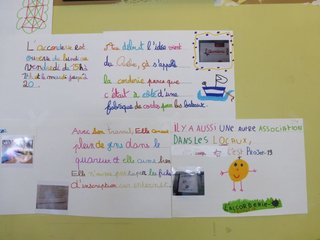 L'accorderie est
ouverte du lundi au
vendredi de
20.
Au début l'idée vient
de Québec, ça s'appelle
la corderie parce que
c'était à côté d'une
fabrique de cordes pour les bateaux.
Avec son travail, Elle connait
plein de gens dans le
quartier et elle aime bien
Elle n'aime pas taper les fiches
d'inscription sur internet.
IL Y A AUSSI UNE AUTRE ASSOCIATION
DANS LES LOCAUX,
C'EST PROJET-19
L'ACCORDERIE